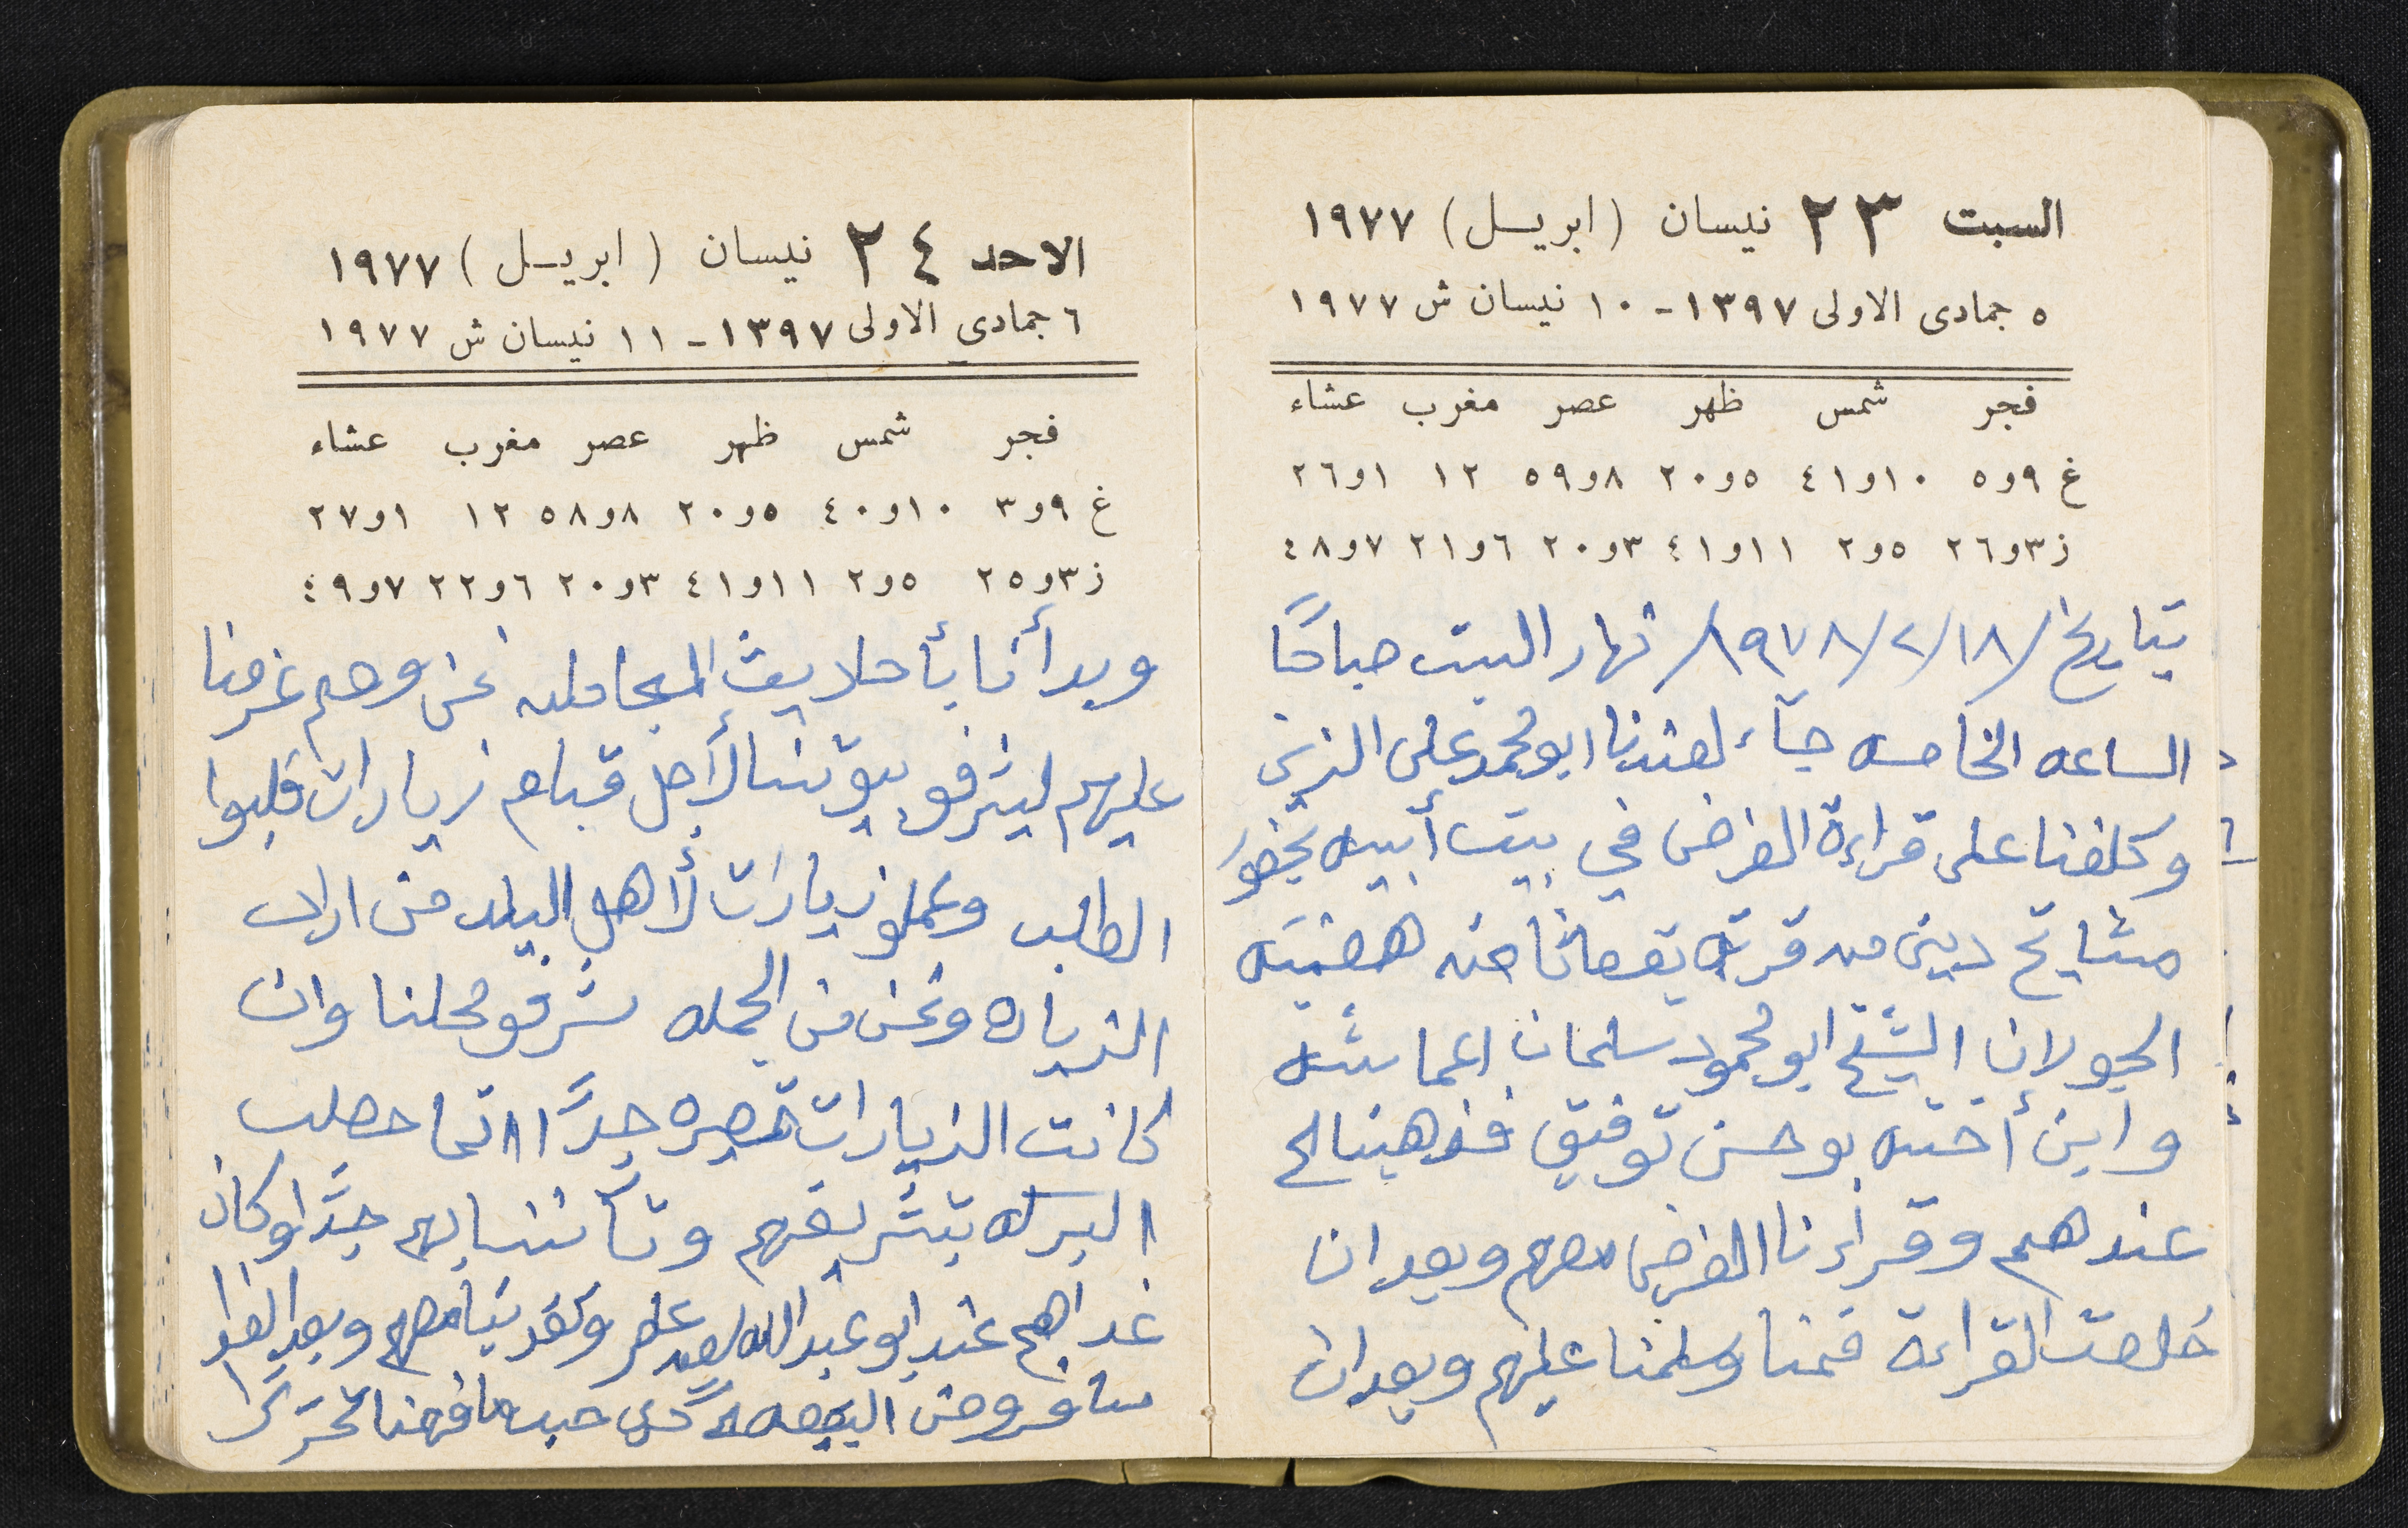 السبت ٢٣ نيسان (ابريل) ١٩٧٧
٥ جمادى الاولى ١٣٩٧ - ١٠ نيسان ش ١٩٧٧
فجر شمس ظهر عصر مغرب عشاء
غ ٩و٥ ١٠و٤١ ٥و٢٠ ٨و٥٩ ١٢ ١و٢٦
ز ٣و٢٦ ٥و٢ ١١و٤١ ٣و٢٠ ٦و٢١ ٧و٤٨
بتاريخ /١٨/٢/١٩٧٨/ نهار السبت صباحًا
الساعه الخامسه جآء لعندنا ابو محمد علي
وكلفنا على قراءة الفرض في بيت أبيه بحضور
مشايخ دين من قرية بقعاثا من هضبة
الجولان الشيخ ابو محمود سلمان اعماشه
وابن أخته بو حسن توفيق فذهبنا لح
عندهم وقرأنا الفرض معهم وبعد ان
خلصت القراءة قمنا وسلمنا عليهم وبعد ان
الاحد ٢٤ نيسان (ابريل) ١٩٧٧
٦ جمادى الاولى ١٣٩٧ - ١١ نيسان ش ١٩٧٧
فجر شمس ظهر عصر مغرب عشاء
غ ٩و٣ ١٠و٤٠ ٥و٢٠ ٨و٥٨ ١٢ ١و٢٧
ز ٣و٢٥ ٥و٢ ١١و٤١ ٣و٢٠ ٦و٢٢ ٧و٤٩
وبدأنا بأحاديث المجامله نحن وهم عرضنا
عليهم ليشرفو بيوتنا لأجل قيام زيارات فلبوا
الطلب وعملو زيارات لأهل البلد من اراد
الزياره ونحن من الجمله شرفو محلنا وان
كانت الزيارات قصيره جدًا انما حصلت
البركه بتشريفهم وتأنسنا بهم جدًا وكان
غداهم عند ابو عبدالله وتغدينا معهم وبعد الغدا
سافرو من البقيعه حسب ما فهمنا تحريرًا